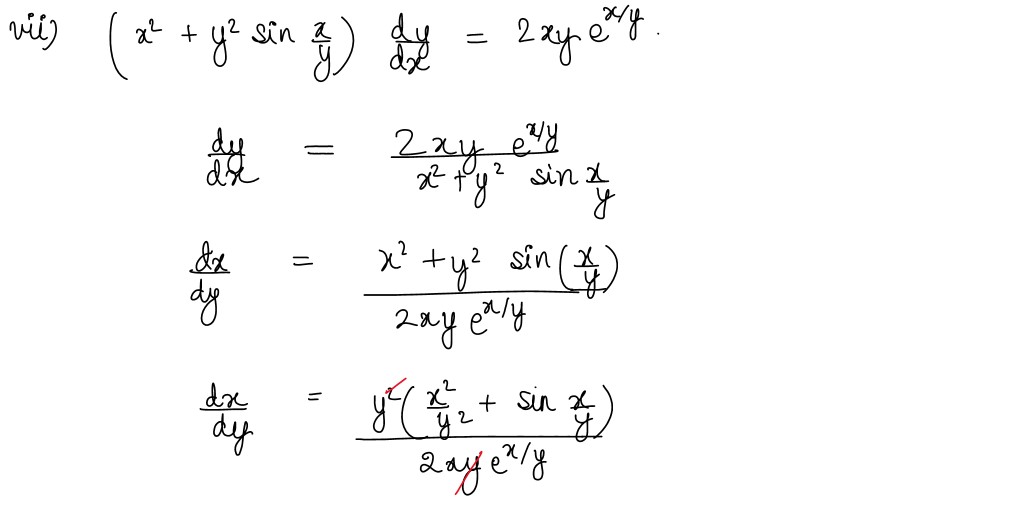 vii) (x² + y² sin x/y) dy/dx = 2xy e^(x/y).
dy/dx = 2xy e^(x/y) / x² + y² sin x/y
dx/dy = x² + y² sin(x/y) / 2xy e^(x/y)
dx/dy = y²(x²/y² + sin x/y) / 2xy e^(x/y)